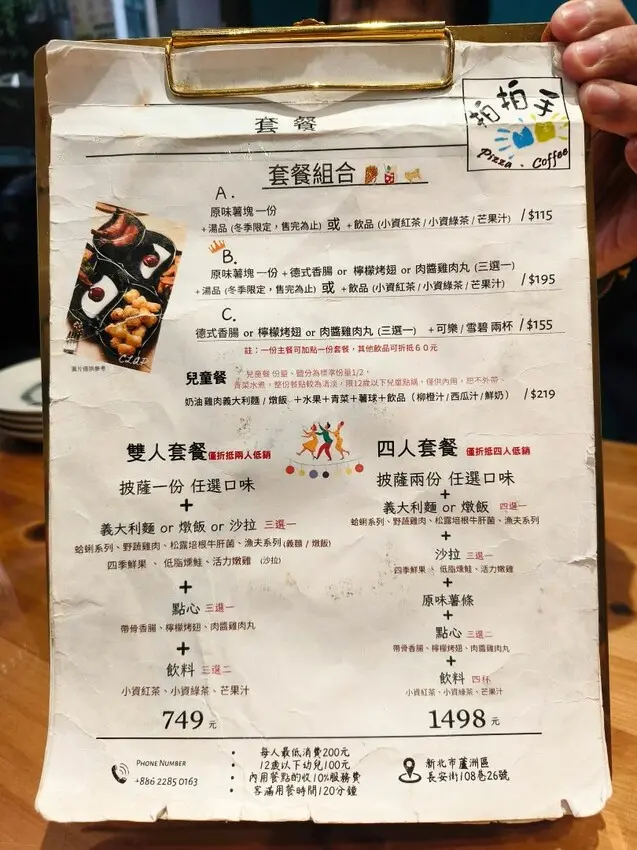 套餐
拍拍手
Pizza、Coffee
套餐組合
A.
原味薯塊一份
+湯品 (冬季限定，售完為止) 或 +飲品 (小資紅茶/小資綠茶/芒果汁) /$115
B.
原味薯塊一份+德式香腸 or 檸檬烤翅 or 肉醬雞肉丸 (三選一)
+湯品 (冬季限定，售完為止) 或 +飲品 (小資紅茶/小資綠茶/芒果汁) /$195
C.
德式香腸 or 檸檬烤翅 or 肉醬雞肉丸 (三選一) +可樂/雪碧 兩杯 /$155
註：一份主餐可加點一份套餐，其他飲品可折抵60元
圖片僅供參考
兒童餐
兒童餐 份量、鹽分為標準份量1/2，
青菜水煮，整份餐點較為清淡，限12歲以下兒童點購，僅供內用，恕不外帶。
奶油雞肉義大利麵/燉飯 +水果+青菜+薯球+飲品 (柳橙汁/西瓜汁/鮮奶) /$219
雙人套餐 僅折抵兩人低銷
披薩一份 任選口味
+
義大利麵 or 燉飯 or 沙拉 三選一
蛤蜊系列、野蔬雞肉、松露培根牛肝菌、漁夫系列 (義麵/燉飯)
四季鮮果 、 低脂燻鮭、活力嫩雞 (沙拉)
+
點心 三選一
帶骨香腸、檸檬烤翅、肉醬雞肉丸
+
飲料 三選二
小資紅茶、小資綠茶、芒果汁
749 元
四人套餐 僅折抵四人低銷
披薩兩份 任選口味
+
義大利麵 or 燉飯 四選一
蛤蜊系列、野蔬雞肉、松露培根牛肝菌、漁夫系列
+
沙拉 三選一
四季鮮果 、 低脂燻鮭、活力嫩雞
+
原味薯條
+
點心 三選二
帶骨香腸、檸檬烤翅、肉醬雞肉丸
+
飲料 四杯
小資紅茶、小資綠茶、芒果汁
1498 元
PHONE NUMBER
+886 2285 0163
• 每人最低消費200元
• 12歲以下幼兒100元
• 內用餐點酌收10%服務費
• 客滿用餐時間120分鐘
新北市蘆洲區
長安街108巷26號